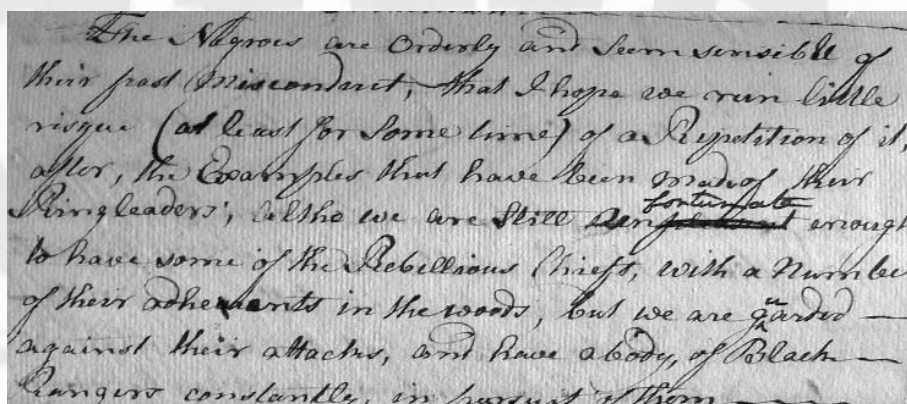 The Negroes are Orderly and Seem sensible of
their past Misconduct, that I hope we run little
risque (at least for Some time) of a Repetition of it,
after, the Examples that have been made of their
Ringleaders; altho we are Still unfortunate enough
to have some of the Rebellious Chiefs, with a Numbe
of their adherents in the woods, but we are guarded —
against their attacks, and have a body, of Black —
Rangers constantly, in pursuit of them ———